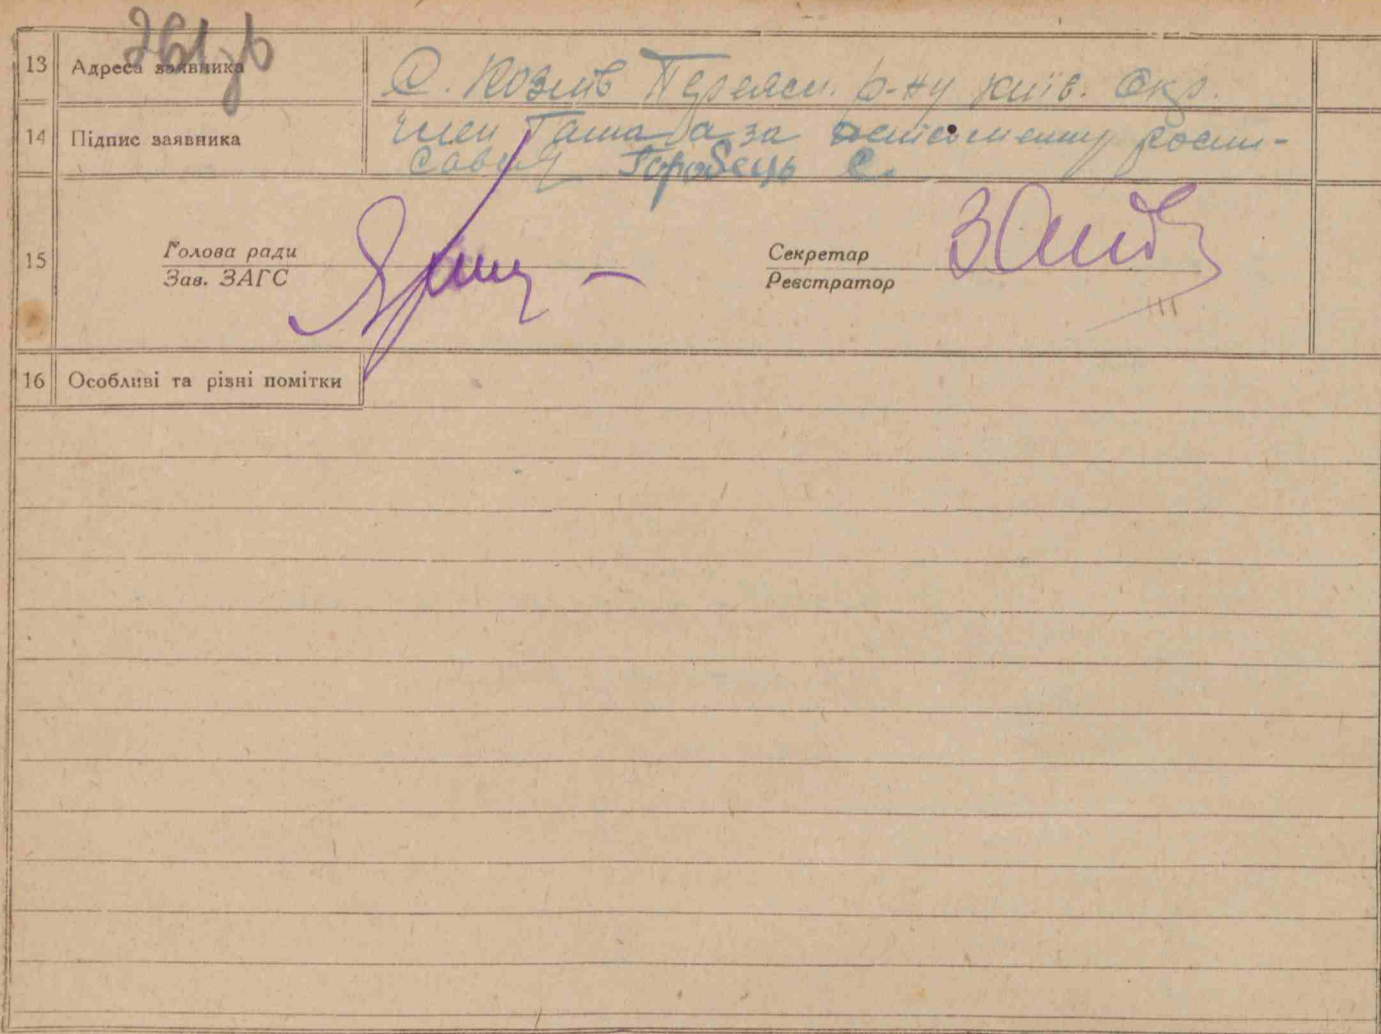 13 Адреса заявника С. Козлів Переясл. р-ну Київ. Окр.
14 Підпис заявника член за неписьменну роспи-
Горобець С.
15 Голова ради Секретар
Зав. ЗАГС Реєстратор
16 Особливі та різні помітки